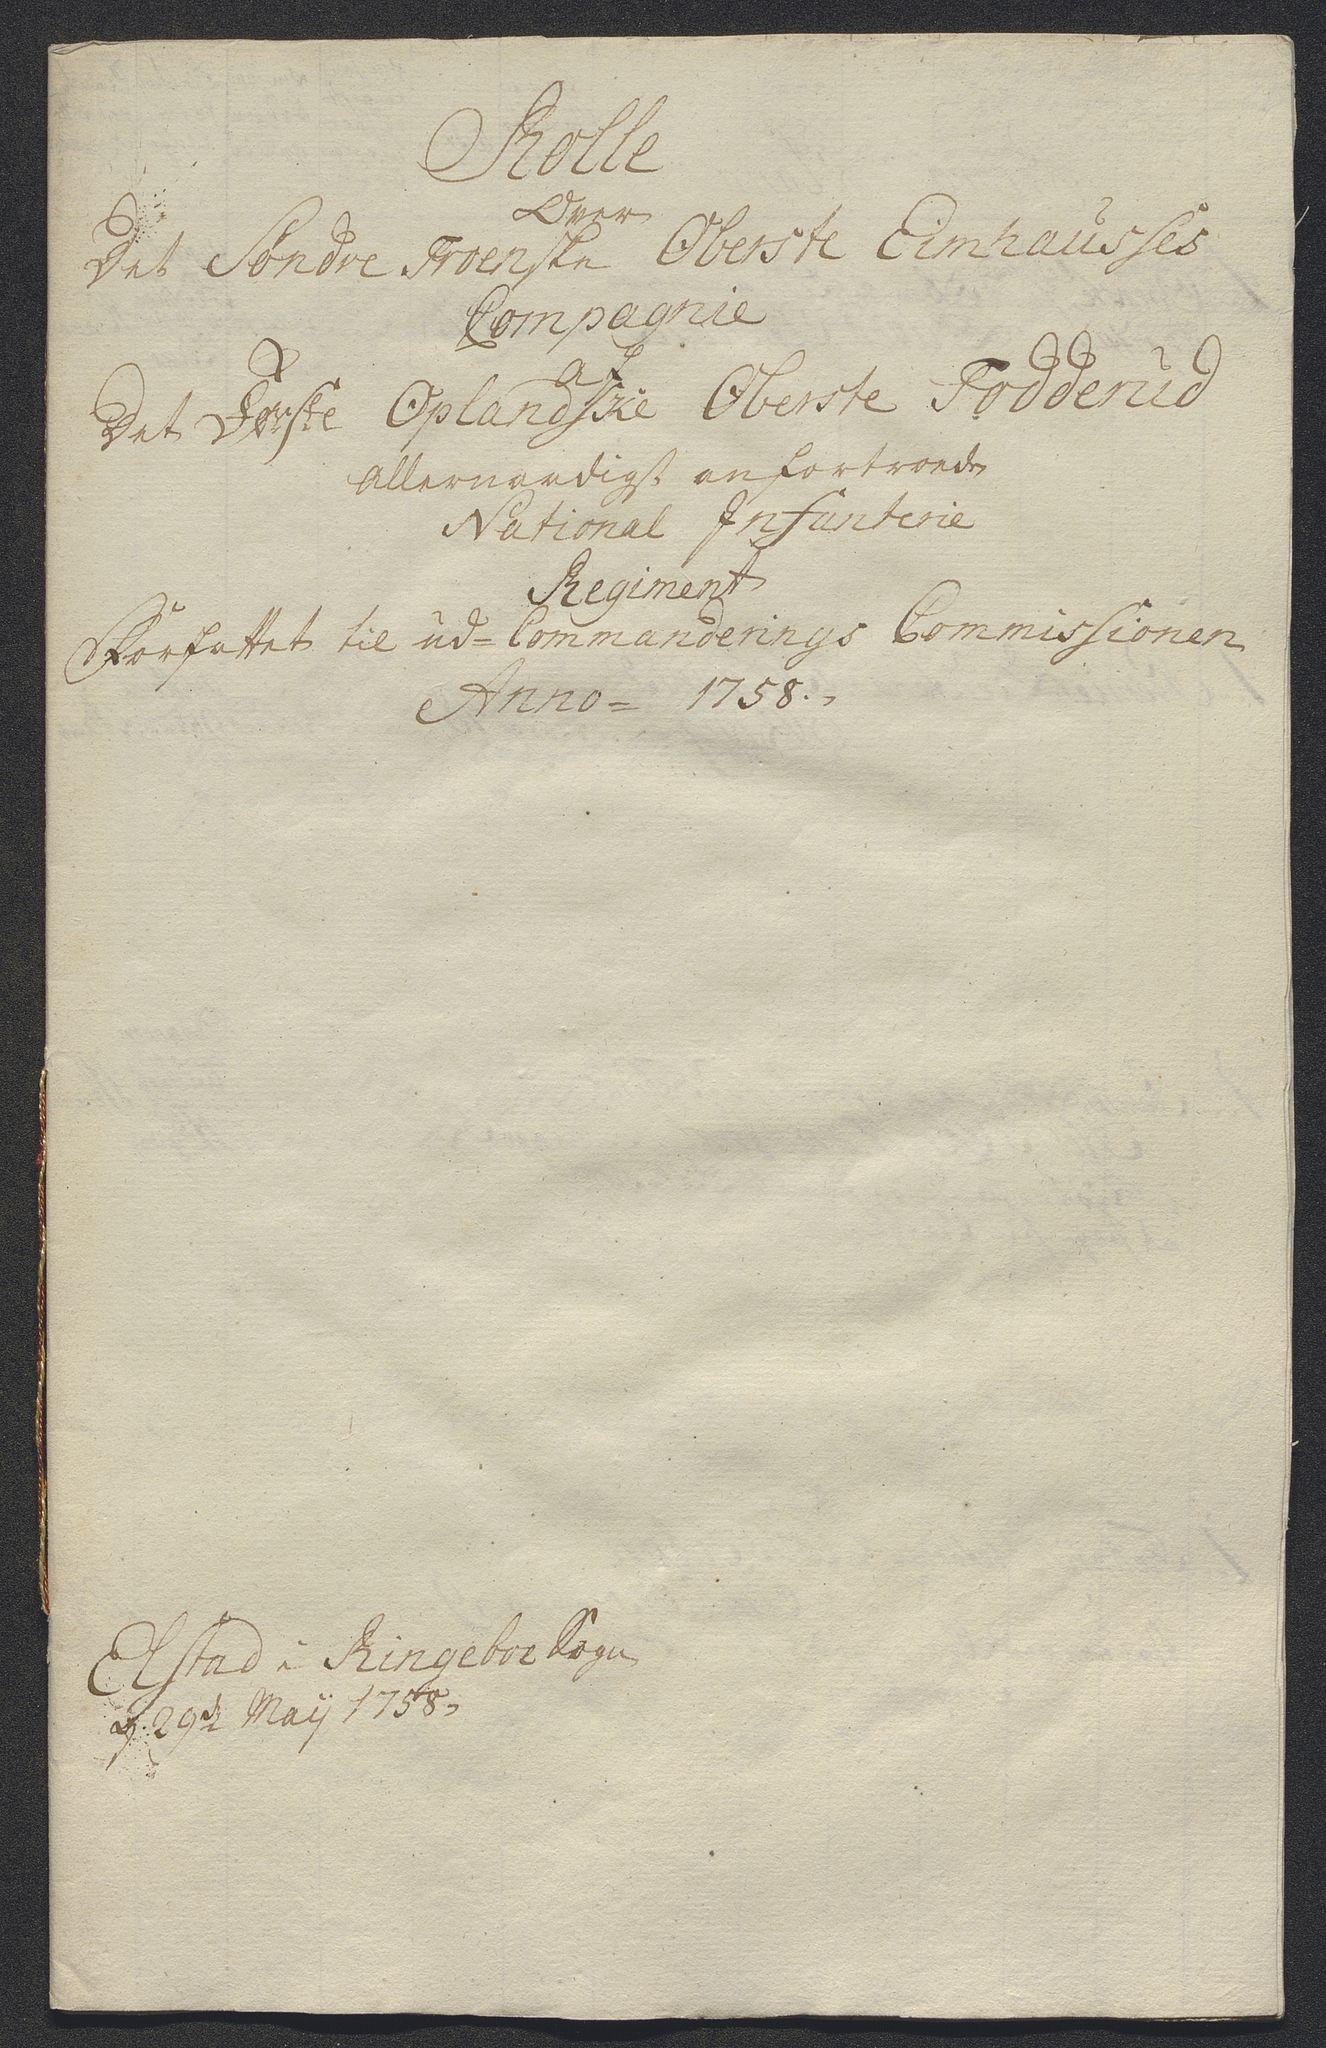 Rolle
Over
Det Søndre Froenske Oberste Eimhausses
Compagnie
af
Det Førske Oplandske Oberste Fodderud
allernaadigst anfortroede
National Infanterie
Regiment
Forfattet til ud= Commanderings Commissionen
Anno= 1758.
Elstad i Ringeboe Sogn
d. 29de Maij 1758.